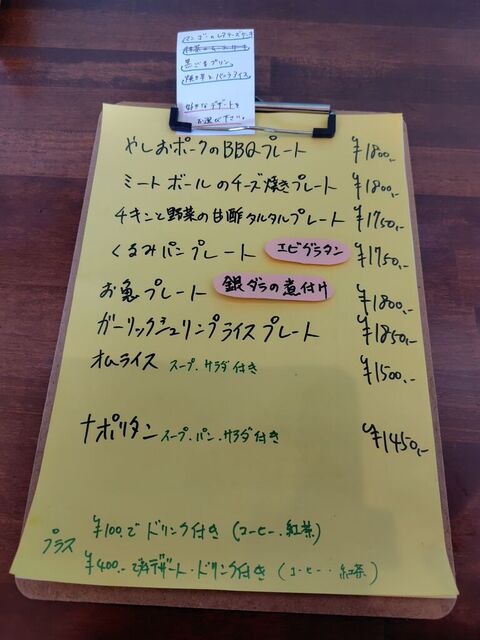 マンゴーのレアチーズケーキ
抹茶のチーズケーキ
黒ごまプリン
焼き芋とバニラアイス
好きなデザートを
お選びください。
やしおポークのBBQプレート ¥1800.-
ミートボールのチーズ焼きプレート ¥1800.-
チキンと野菜の甘酢タルタルプレート ¥1750.-
くるみパンプレート エビグラタン ¥1750.-
お魚プレート 銀ダラの煮付け ¥1800.-
ガーリックシュリンプライスプレート ¥1850.-
オムライス スープ.サラダ付き ¥1500.-
ナポリタン スープ.パン.サラダ付き ¥1450.-
プラス ¥100.で ドリンク付き (コーヒー.紅茶)
¥400.-で デザート.ドリンク付き (コーヒー.紅茶)